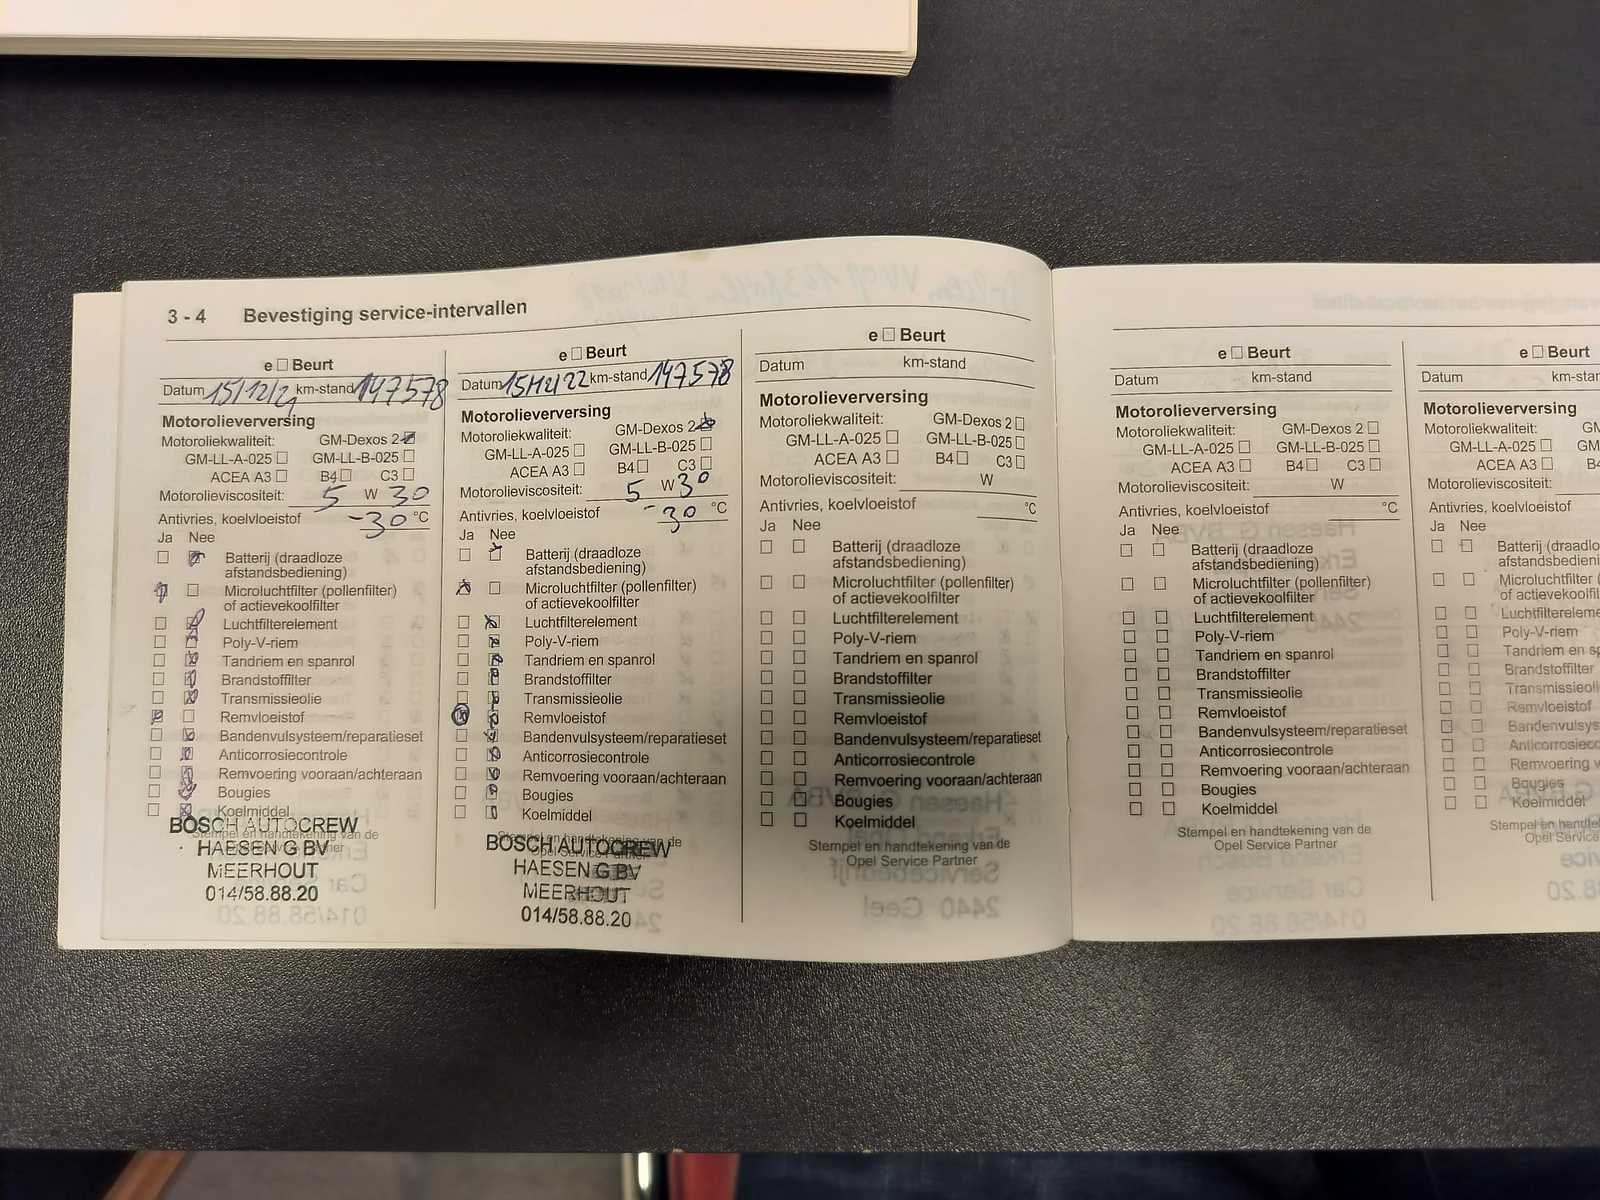 3 - 4 Bevestiging service-intervallen
e Beurt
Datum 15/12/21 km-stand 147578
Motorolieverversing
Motoroliekwaliteit: GM-Dexos 2
GM-LL-A-025 GM-LL-B-025
ACEA A3 B4 C3
Motorolieviscositeit: 5 W 30
Antivries, koelvloeistof -30 °C
Ja Nee
Batterij (draadloze
afstandsbediening)
Microluchtfilter (pollenfilter)
of actievekoolfilter
Luchtfilterelement
Poly-V-riem
Tandriem en spanrol
Brandstoffilter
Transmissieolie
Remvloeistof
Bandenvulsysteem/reparatieset
Anticorrosiecontrole
Remvoering vooraan/achteraan
Bougies
Koelmiddel
Stempel en handtekening van de
BOSCH AUTOCREW
HAESEN G BV
MEERHOUT
014/58.88.20
e Beurt
Datum km-stand 147578
Motorolieverversing
Motoroliekwaliteit: GM-Dexos 2
GM-LL-A-025 GM-LL-B-025
ACEA A3 B4 C3
Motorolieviscositeit: 5 W 30
Antivries, koelvloeistof -30 °C
Ja Nee
Batterij (draadloze
afstandsbediening)
Microluchtfilter (pollenfilter)
of actievekoolfilter
Luchtfilterelement
Poly-V-riem
Tandriem en spanrol
Brandstoffilter
Transmissieolie
Remvloeistof
Bandenvulsysteem/reparatieset
Anticorrosiecontrole
Remvoering vooraan/achteraan
Bougies
Koelmiddel
Stempel en handtekening van de
BOSCH AUTOCREW
HAESEN G BV
MEERHOUT
014/58.88.20
e Beurt
Datum km-stand
Motorolieverversing
Motoroliekwaliteit: GM-Dexos 2
GM-LL-A-025 GM-LL-B-025
ACEA A3 B4 C3
Motorolieviscositeit: W
Antivries, koelvloeistof °C
Ja Nee
Batterij (draadloze
afstandsbediening)
Microluchtfilter (pollenfilter)
of actievekoolfilter
Luchtfilterelement
Poly-V-riem
Tandriem en spanrol
Brandstoffilter
Transmissieolie
Remvloeistof
Bandenvulsysteem/reparatieset
Anticorrosiecontrole
Remvoering vooraan/achteraan
Bougies
Koelmiddel
Stempel en handtekening van de
Opel Service Partner
e Beurt
Datum km-stand
Motorolieverversing
Motoroliekwaliteit: GM-Dexos 2
GM-LL-A-025 GM-LL-B-025
ACEA A3 B4 C3
Motorolieviscositeit: W
Antivries, koelvloeistof °C
Ja Nee
Batterij (draadloze
afstandsbediening)
Microluchtfilter (pollenfilter)
of actievekoolfilter
Luchtfilterelement
Poly-V-riem
Tandriem en spanrol
Brandstoffilter
Transmissieolie
Remvloeistof
Bandenvulsysteem/reparatieset
Anticorrosiecontrole
Remvoering vooraan/achteraan
Bougies
Koelmiddel
Stempel en handtekening van de
Opel Service Partner
e Beurt
Datum km-star
Motorolieverversing
Motoroliekwaliteit:
GM-LL-A-025 GM
ACEA A3 B4
Motorolieviscositeit:
Antivries, koelvloeistof
Ja Nee
Batterij (draadlo
afstandsbedieni
Microluchtfilter (
of actievekoolfil
Luchtfiltereleme
Poly-V-riem
Tandriem en sp
Brandstoffilter
Transmissieoli
Remvloeistof
Bandenvulsys
Anticorrosiec
Remvoering v
Bougies
Koelmiddel
Stempel en handte
Opel Servic